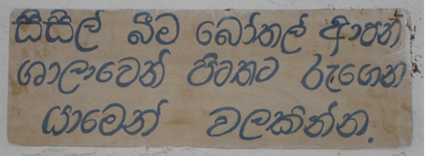 සිසිල් බීම බෝතල් ආපන
ශාලාවෙන් පිටතට රැගෙන
යාමෙන් වලකින්න.